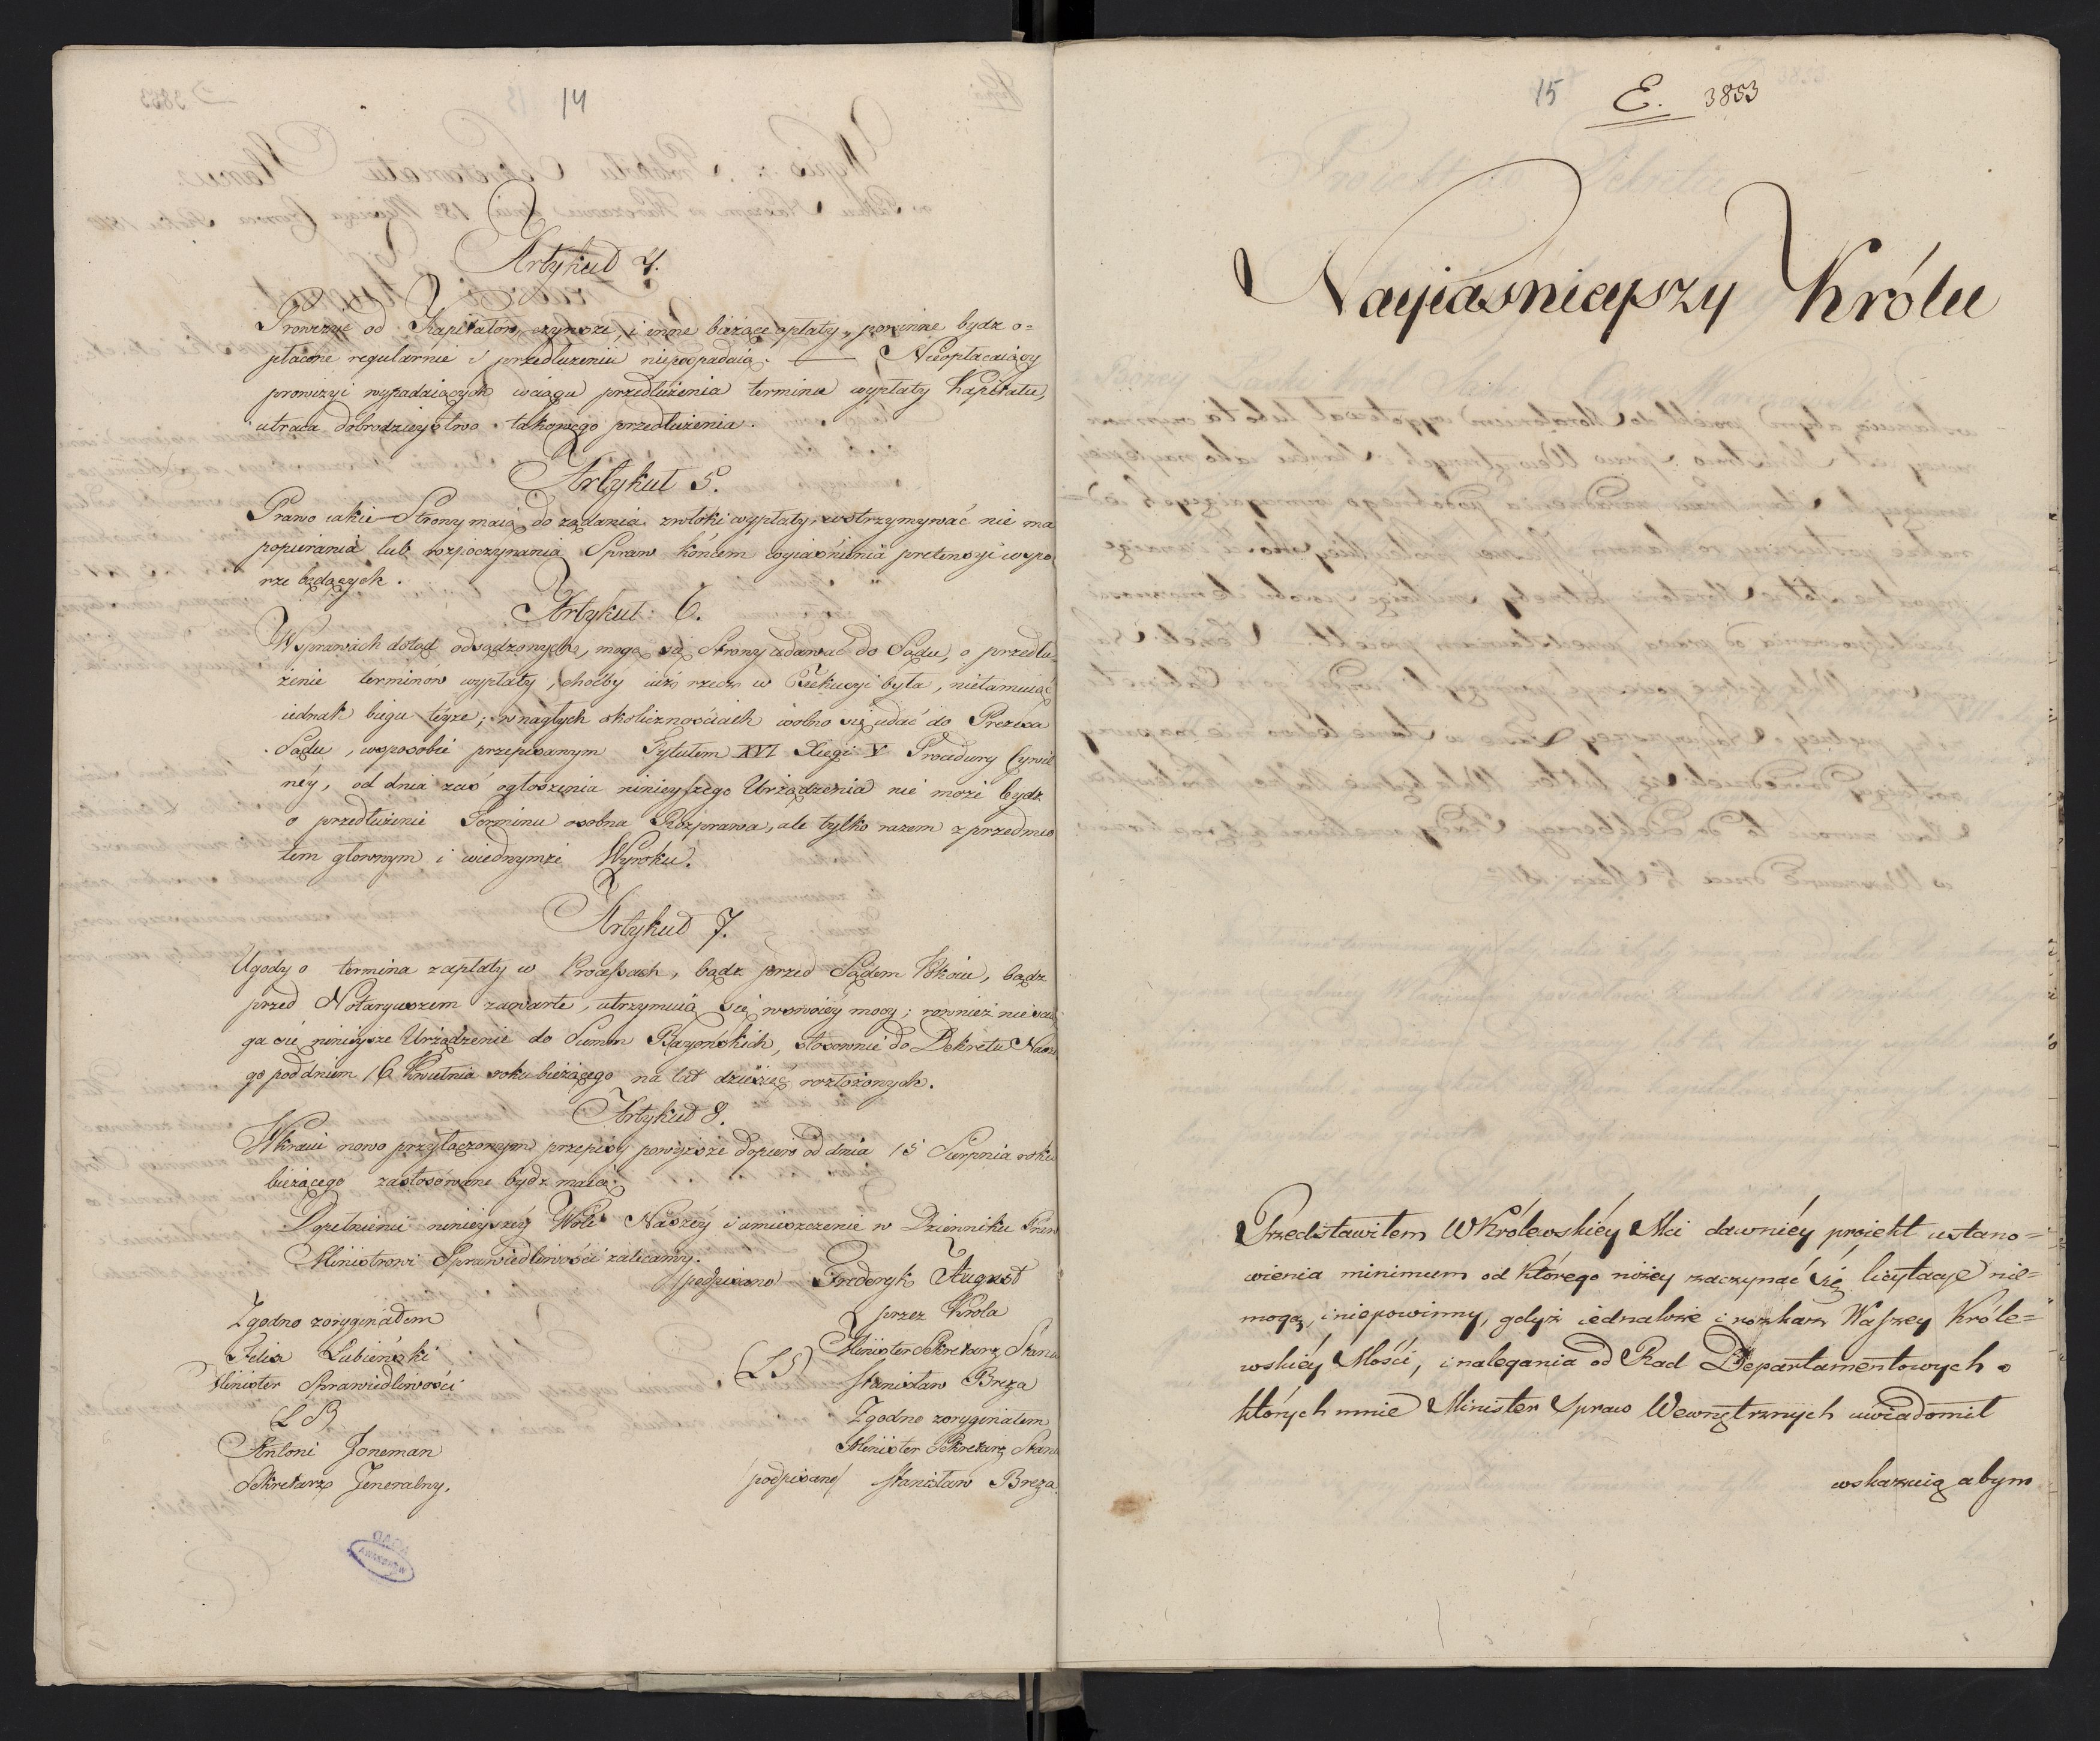 14
Artykuł 4.
Prowizye od Kapitałów, czynsze, i inne bieżące opłaty, powinne bydz o=
płacone regularnie i przedłużeniu niepodpadaią. — Nieopłacaiący
prowizyi wypadaiących wciągu przedłużenia terminu wypłaty Kapitału,
utraca dobrodzieystwo takowego przedłużenia.
Artykuł 5.
Prawo iakie Strony maią do żądania zwłoki wypłaty, wstrzymywać nie ma
popierania lub rozpoczynania Spraw końcem wyiaśnienia pretensyi wspo
rze będących.
Artykuł 6.
W sprawach dotąd odsądzonych, mogą się Strony udawać do Sądu, o przedłu=
żenie terminów wypłaty, choćby iuż rzecz w Exekucyi była, nietamuiąc
iednak biegu téyże; w nagłych okolicznościach wolno się udać do Prezesa
Sądu, wsposobie przepisanym Tytułem XVI Xięgi V Procedury Cywil
néy, od dnia zaś ogłoszenia ninieyszego Urządzenia nie może bydz
o przedłużenie Terminu osobna Rozprawa, ale tylko razem z przedmio
tem głownym i wiednymże Wyroku.
Artykuł 7.
Ugody o termina zapłaty w Processach, bądz przed Sądem Pokoiu, bądz
przed Notaryuszem zawarte, utrzymuią się wswoiéy mocy; rownież nie ścią
ga się ninieysze Urządzenie do Summ Bayońskich, stosownie do Dekretu Nasze
go pod dniem 16 Kwietnia roku bieżącego na lat dziesięć rozłożonych.
Artykuł 8.
W kraiu nowo przyłączonym przepisy powyższe dopiero od dnia 15 Sierpnia roku
bieżącego zastosowane bydz maią.
Dopełnienie ninieyszéy Woli Naszéy i umieszczenie w Dzienniku Praw
Ministrowi Sprawiedliwości zalecamy.
/podpisano Fryderyk August
przez Króla
Minister Sekretarz Stanu
(LS) Stanisław Breza
Zgodno zoryginałem
Minister Sekretarz Stanu
/podpisano/ Stanisław Breza.
Zgodno zoryginałem
Felix Łubieński
Minister Sprawiedliwości
LS
Antoni Joneman
Sekretarz Jeneralny.
15 E. 3853
Nayiaśnieyszy Królu
Przedstawiłem WKrólewskiéy Mci dawniéy proiekt ustano=
wienia minimum od którego niżey zaczynać się licytacye nie=
mogą, i niepowinny, gdyż iednakże i rozkaz Waszey Króle=
wskiéy Mości, i nalegania od Rad Departamentowych o
których mnie Minister Spraw Wewnętrznych uwiadomił
wskazuią abym